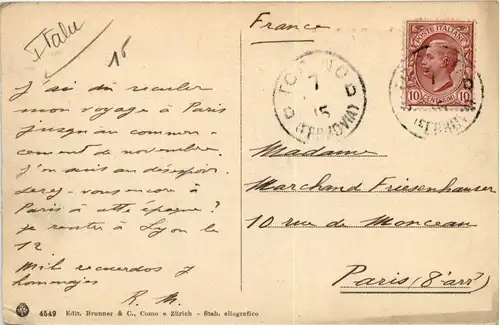 Italie
15
J'ai dû reculer
mon voyage à Paris
jusqu'au commen-
cement de novembre.
J'en suis au désespoir.
Serez-vous encore à
Paris à cette époque?
je rentre à Lyon le
12
Mil recuerdos y
homenajes
R. M.
4549 Edit. Brunner & C., Como e Zürich - Stab. eliografico
France
POSTE ITALIANE
10 CENTESIMI 10
TORINO
7
15
(FERROVIA)
Madame
Marchand Friesenhauser
10 rue de Monceau
Paris (8e arrt)